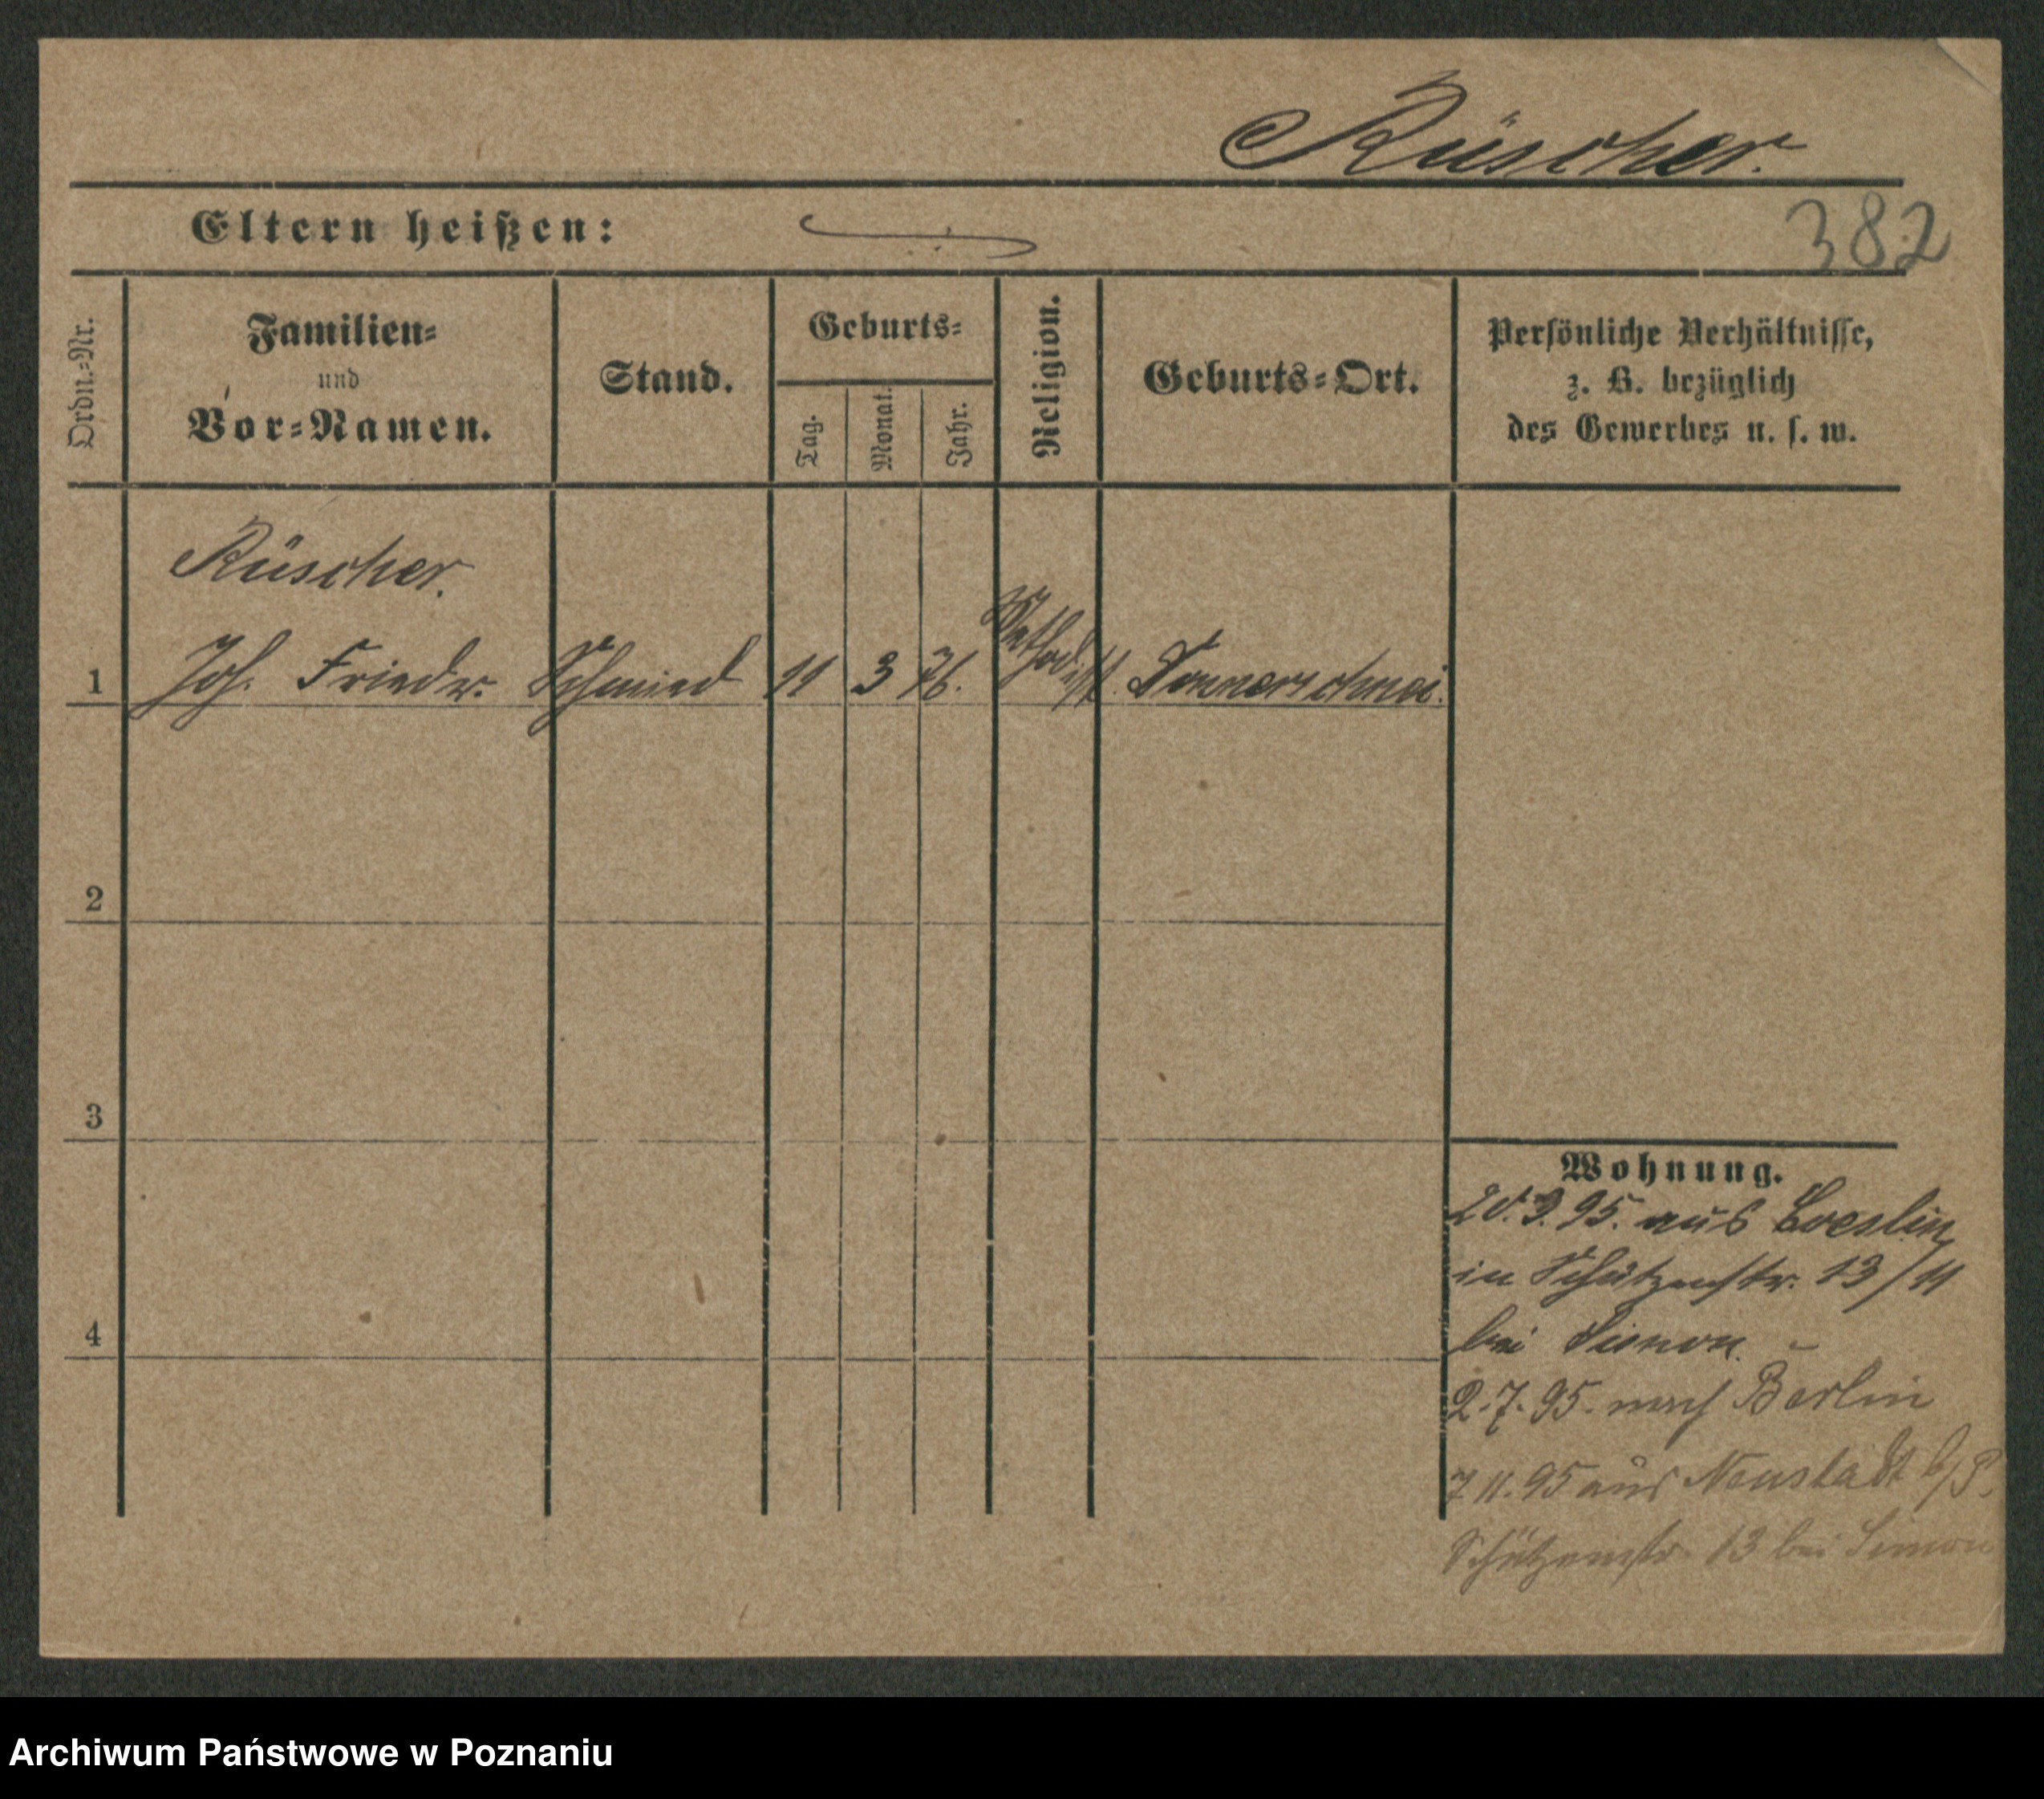 Rüscher.
Eltern heißen:
382
Ordn.=Nr.
Familien=
und
Vor=Namen.
Stand.
Geburts=
Tag.
Monat.
Jahr.
Religion.
Geburts=Ort.
Persönliche Verhältnisse,
z. B. bezüglich
des Gewerbes u. s. w.
Rüscher.
1 Joh. Friedr. Schmied 11 3 76. Methodist.
2
3
4
Wohnung.
20.3.95. aus Coeslin
in Schützenstr. 13/11
bei Simon.
2.7.95. nach Berlin
7 11.95 aus Neustadt b/P.
Schützenstr 13 bei Simon
Archiwum Państwowe w Poznaniu